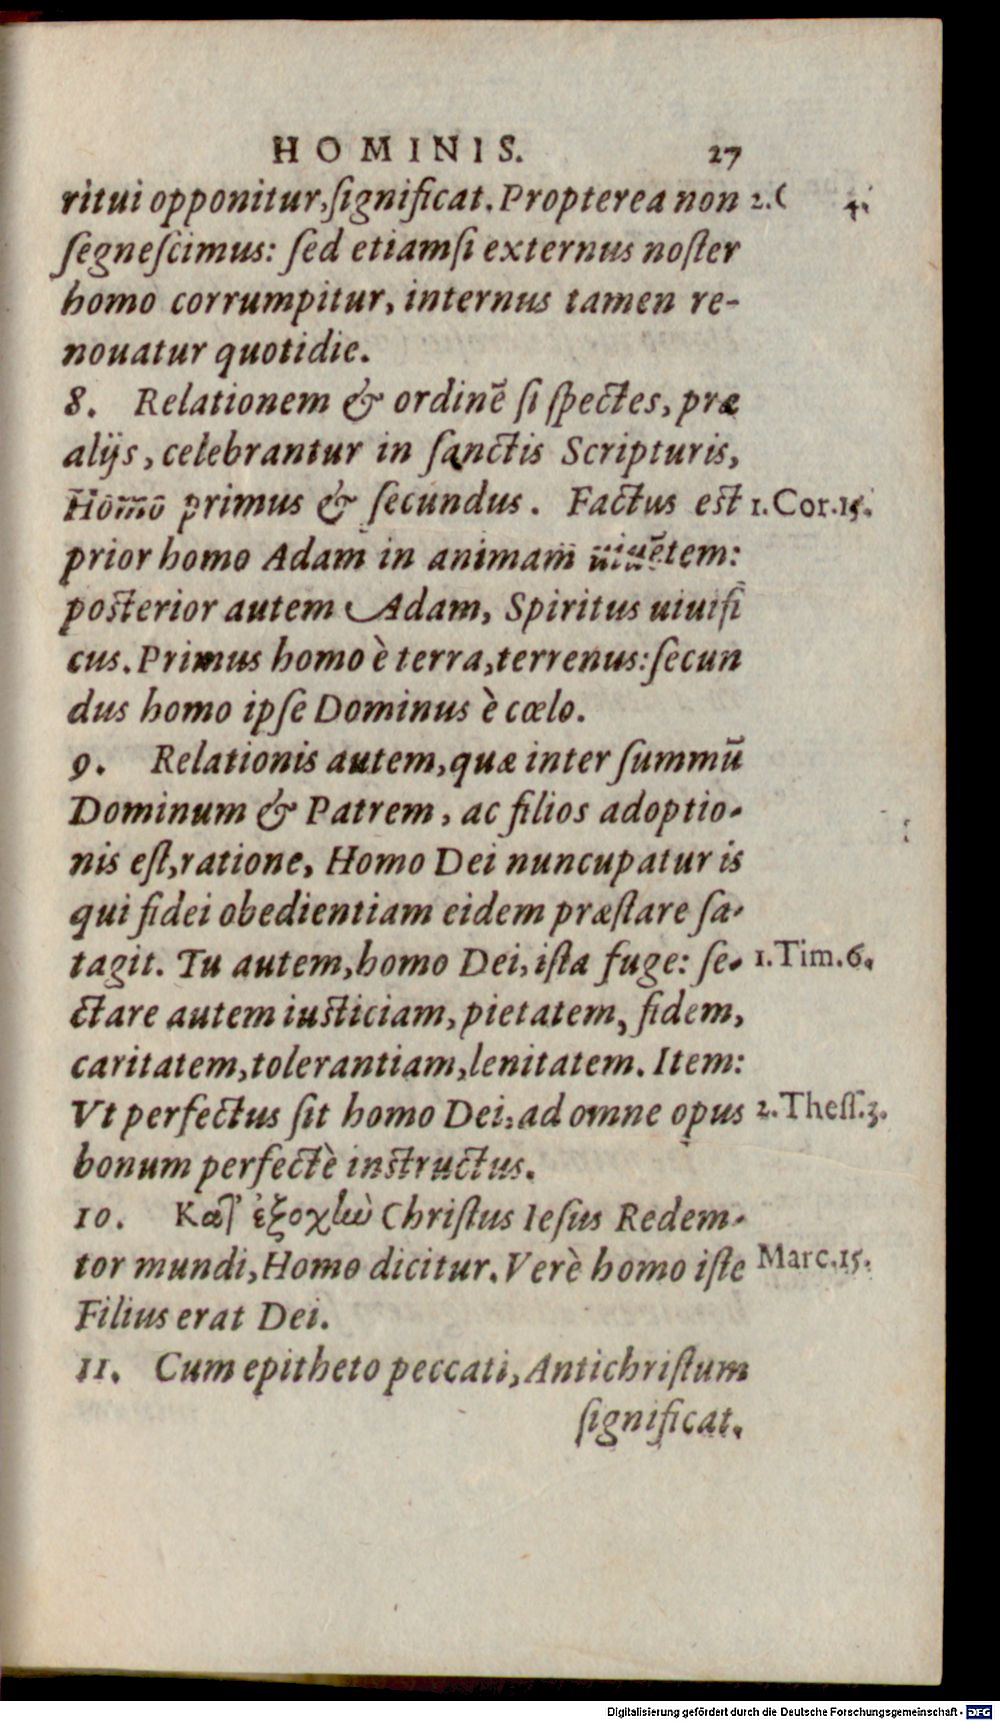 HOMINIS. 27
ritui opponitur, ſignificat. Propterea non
2.C 4.
ſegneſcimus: ſed etiamſi externus noſter
homo corrumpitur, internus tamen re-
nouatur quotidie.
8. Relationem & ordinē ſi ſpectes, præ
alijs, celebrantur in ſanctis Scripturis,
Homo primus & ſecundus. Factus est
1. Cor. 15.
prior homo Adam in animam uiuētem:
posterior autem Adam, Spiritus uiuifi
cus. Primus homo è terra, terrenus: ſecun
dus homo ipſe Dominus è cœlo.
9. Relationis autem, quæ inter ſummū
Dominum & Patrem, ac filios adoptio-
nis eſt, ratione, Homo Dei nuncupatur is
qui fidei obedientiam eidem præſtare ſa-
tagit. Tu autem, homo Dei, iſta fuge: ſe-
1. Tim. 6.
ctare autem iusticiam, pietatem, fidem,
caritatem, tolerantiam, lenitatem. Item:
Vt perfectus ſit homo Dei, ad omne opus
2. Theſſ. 3.
bonum perfectè instructus.
10. Κατ' ἐξοχὴν Chriſtus Ieſus Redem-
tor mundi, Homo dicitur. Verè homo iſte
Marc. 15.
Filius erat Dei.
11. Cum epitheto peccati, Antichriſtum
ſignificat.
Digitalisierung gefördert durch die Deutsche Forschungsgemeinschaft - DFG